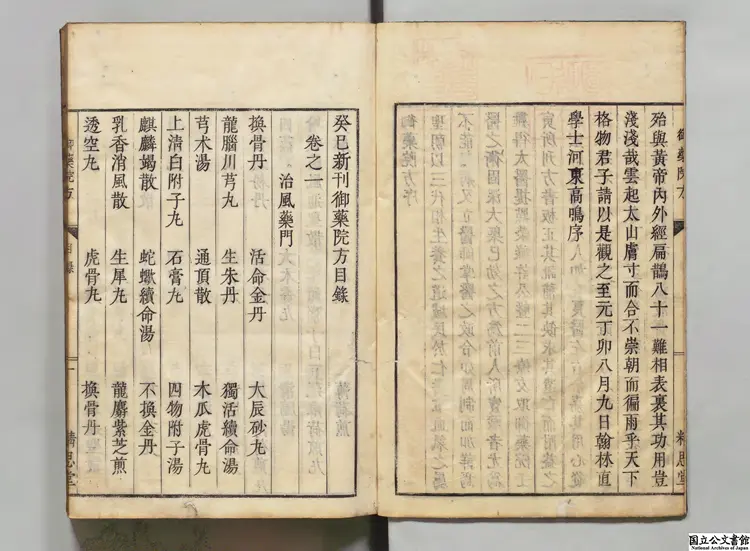 殆與黃帝內外經扁鵲八十一難相表裏其功用豈
淺淺哉雲起太山膚寸而合不崇朝而徧雨乎天下
格物君子請以是觀之至元丁卯八月九日翰林直
學士河東高鳴序
御藥院方
精思堂
癸巳新刊御藥院方目錄
卷之一 治風藥門
換骨丹 活命金丹 大辰砂丸
龍腦川芎丸 生朱丹 獨活續命湯
芎朮湯 通頂散 木瓜虎骨丸
上清白附子丸 石膏丸 四物附子湯
麒麟竭散 蛇蠍續命湯 不換金丹
乳香消風散 生犀丸 龍麝紫芝煎
透空丸 虎骨丸 換骨丹
御藥院方 目錄 一 精思堂
国立公文書館
National Archives of Japan